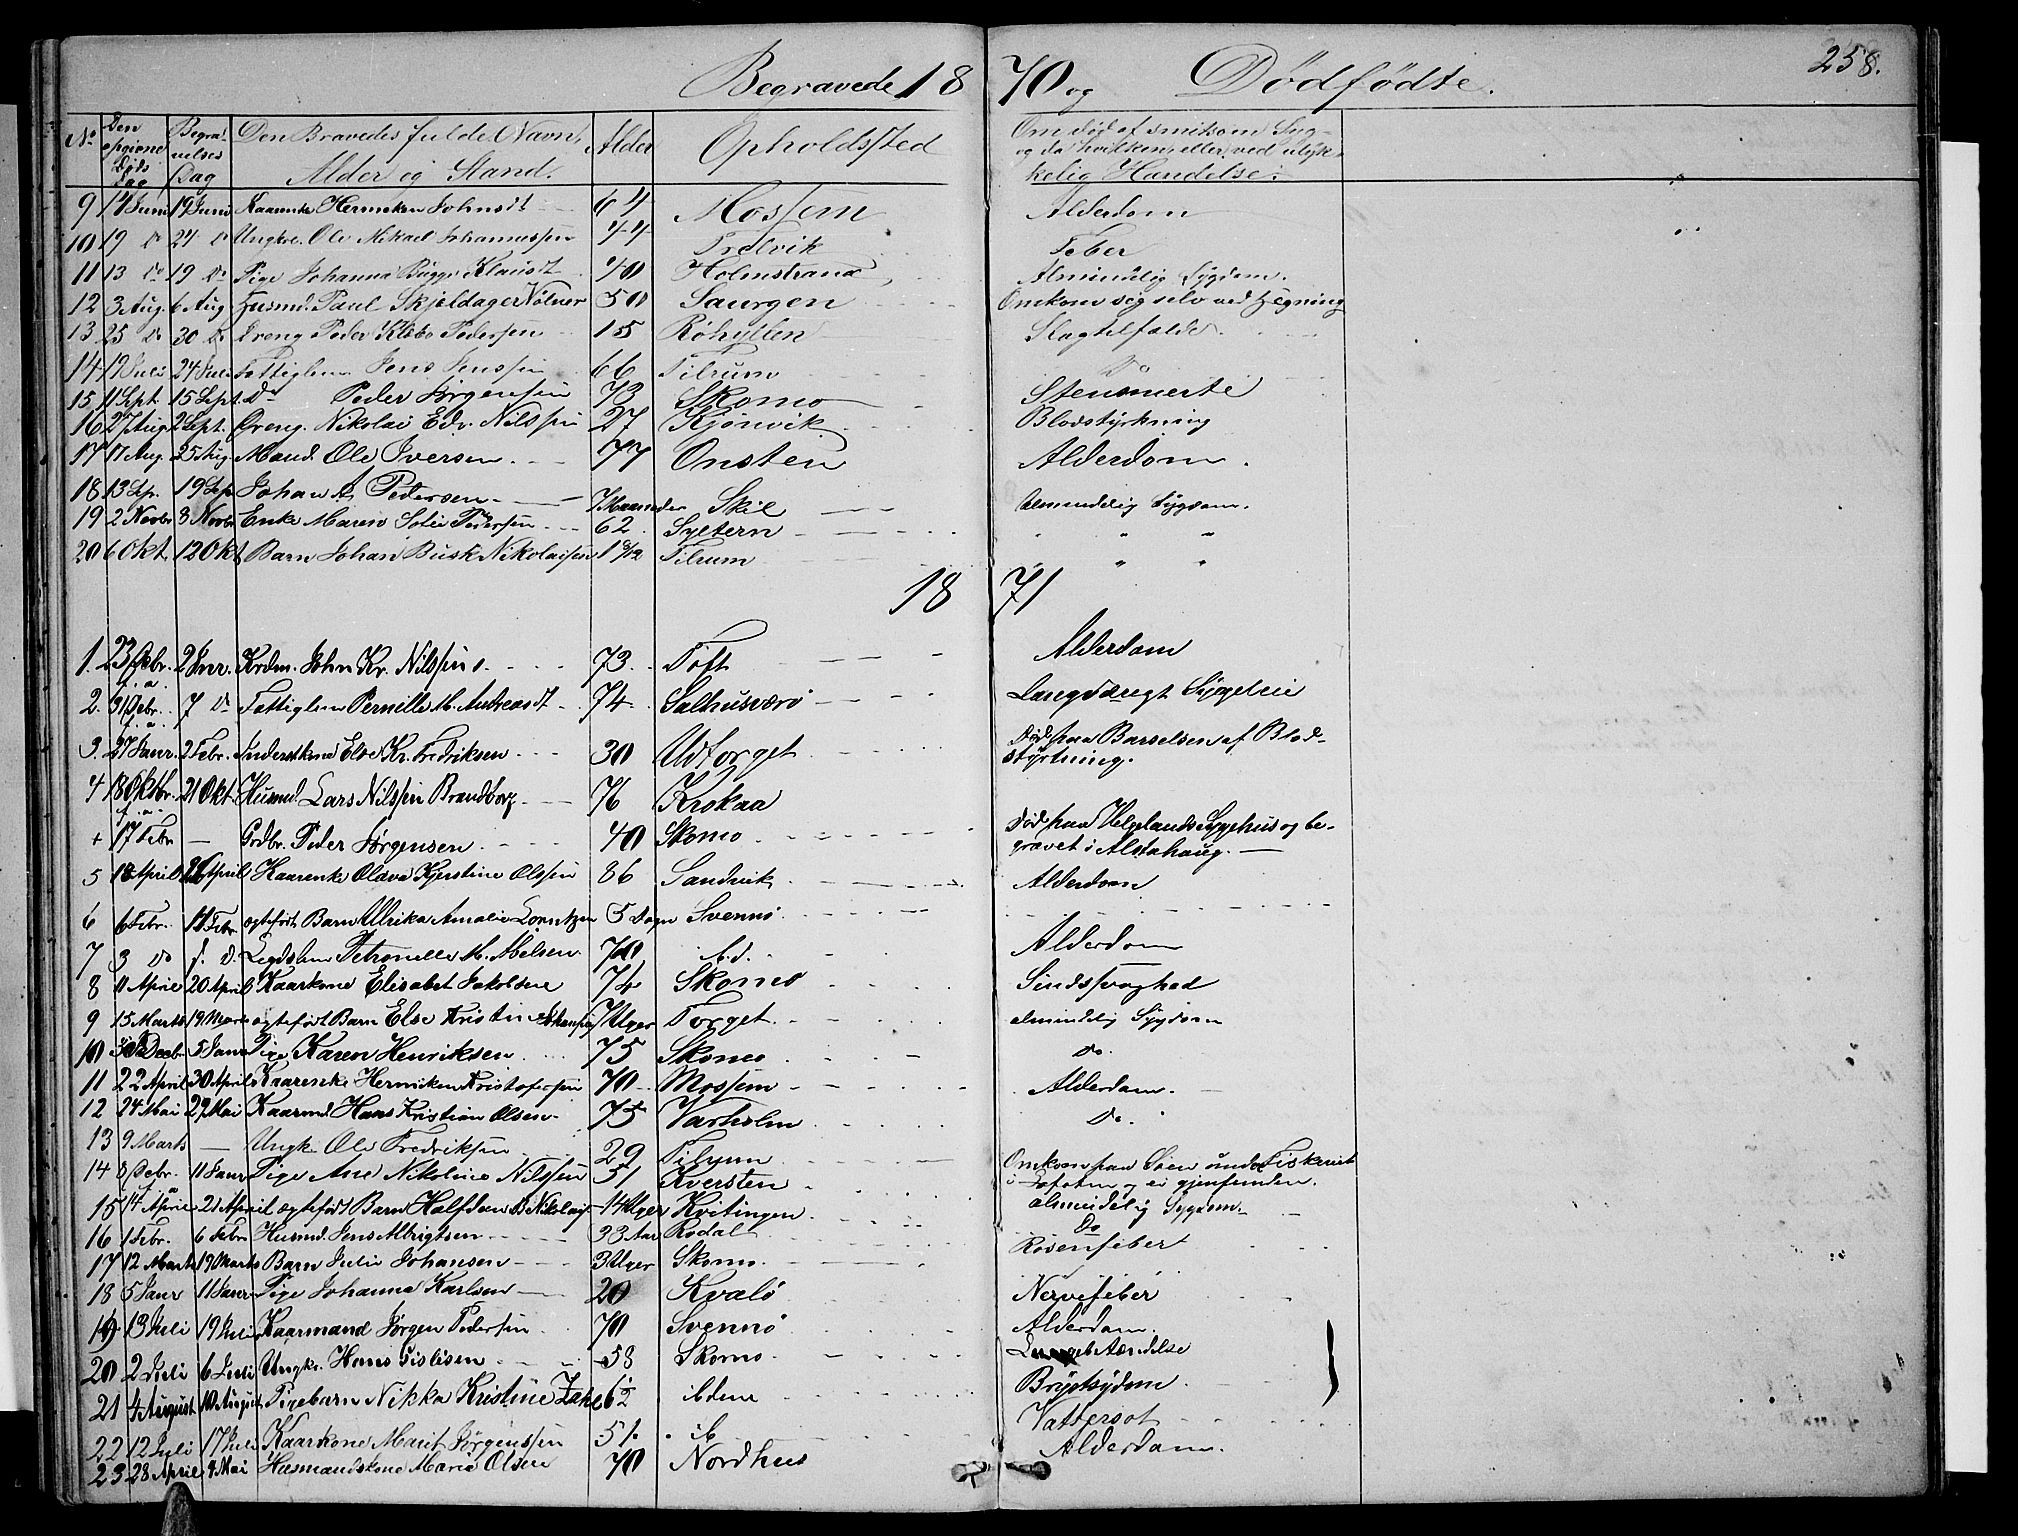 258.
Begravede 18 70 og Dødfødte.
No Den opgivne Døds Dag Begravelses Dag Den Bravedes fulde Navn, Alder og Stand. Alder Opholdsted Om død af smitsom Syg- og da hvilken, eller ved ulyk- kelig Handelse.
9 14 Juni 19 Juni Kaarenke Hermeken Johnsdt 64 Mossem Alderdom
10 19 do 24 do Ungkr. Ole Mikael Johannessen 44 Trelvik Feber
11 13 do 19 do Pige Johanna Bugge Klausdt 40 Holmstrand Almindelig Sygdom.
12 3 Aug. 6 Aug Husmd. Paul Skjeldager Nølner 50 Saurgen Omkom sig selv ved Hegning
13 25 do 30 do Dreng Peder Klebo Pedersen 15 Røhylten Slagtilfælde
14 19 Juli 24 Juli Fattiglem Jens Jenssen 66 Tilrum Do
15 11 Sept. 15 Sept. Do Peder Jørgensen 73 Skomo Stensmerte
16 27 Aug. 2 Sept. Dreng. Nikolai Edv. Nilssen 27 Kjønvik Blodstyrkning
17 17 Aug. 25 Aug. Mand. Ole Iversen 77 Onsten Alderdom.
18 13 Sep. 19 Sep Johan A. Pedersen 7 Maaneder Skil almindelig Sygdom.
19 2 Novbr 8 Novbr Enke Maren Sofie Pedersen 62 Syltern " " "
20 6 Okt. 12 Okt Barn Johan Busk Nikolaisen 1 8/12 Tilrum " " "
18 71
1. 23 Debr. f.a. 2 Jnr. Kordm. John Kr. Nilssen 73 Toft Alderdom
2. 31 Debr. f.a. 7 do Fattiglem Pernille M. Andreasdt 74 Salhusværø Langværigt Sygeleie
3. 27 Janr. 2 Febr. Inderstkone Else Kr. Fredriksen 30 Udtorget Død paa Barselsen af Blod-
styrtning.
4 18 Oktbr. f.a. 21 Okt. Husmd. Lars Nilssen Brandborg 76 Krokaa
+ 17 Febr — Grdbr. Peder Jørgensen 40 Skomo Død paa Helgelands Sygehus og be-
gravet i Alstahaug.
5 18 April 26 April Kaarenke Olava Kjerstine Olssen 86 Sandvik Alderdom
6 6 Febr. 14 Febr ægtefødt Barn Ulrika Amalie Lorntzen 5 Dage Svennø
7 3 do f. d. Legdslem Petronelle M. Abelsen 70 ib.d. Alderdom
8 11 April 20 April Kaarkone Elisabet Jakobsen 74 Skomo Sindssvaghed
9 15 Marts 19 Marts ægtefødt Barn Else Kristine Johansen 7 Uger Torget almindelig Sygdom
10 30 Decbr 5 Janr Pige Karen Henriksen 75 Skomo Do.
11 22 April 30 April Kaarenke Hermiken Kristofersen 70 Mossem Alderdom.
12 24 Mai 29 Mai Kaarmd Hans Kristian Olsen 75 Varholm Do.
13 9 Marts — Ungk. Ole Fredriksen 29 Tilrum Omkom paa Søen under Fiskeriet
14 8 Debr. f.a. 11 Janr Pige Ane Nikoline Nilssen 31 Kversten i Lofoten og ei gjenfunden.
15 14 April 21 April ægtefødt Barn Halfdan B. Nikolais 14 Uger Kvitingen almindelig Sygdom
16 1 Febr. 6 Febr Husmd. Jens Albrigtsen 33 Aar Rodal Do
17 12 Marts 19 Marts Barn Julie Johansen 3 Uger Skomo Rosenfeber
18 5 Janr 11 Janr Pige Johanna Karlsen 20 Kvalø Nervefeber
19 13 Juli 19 Juli Kaarmand Jørgen Pedersen 70 Svennø Alderdom.
20 2 Juli 6 Juli Ungkr. Hans Sislisen 58 Skomo Lungebetændelse
21 4 August 10 August Pigebarn Nikka Kristine Zakr 6 1/2 ibdem Brystsygdom
22 12 Juli 17 Juli Kaarkone Marit Jørgenssen 51 ib Vattersot
23 28 April 4 Mai Husmandskone Maria Olsen 70 Nordhus Alderdom.